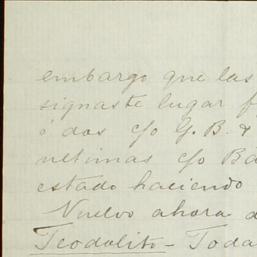 embargo que las
signaste lugar f
ó dos c/o G. B. &
ultimas c/o Ba
estado haciendo
Nuevo ahora a
Teodolito - Toda